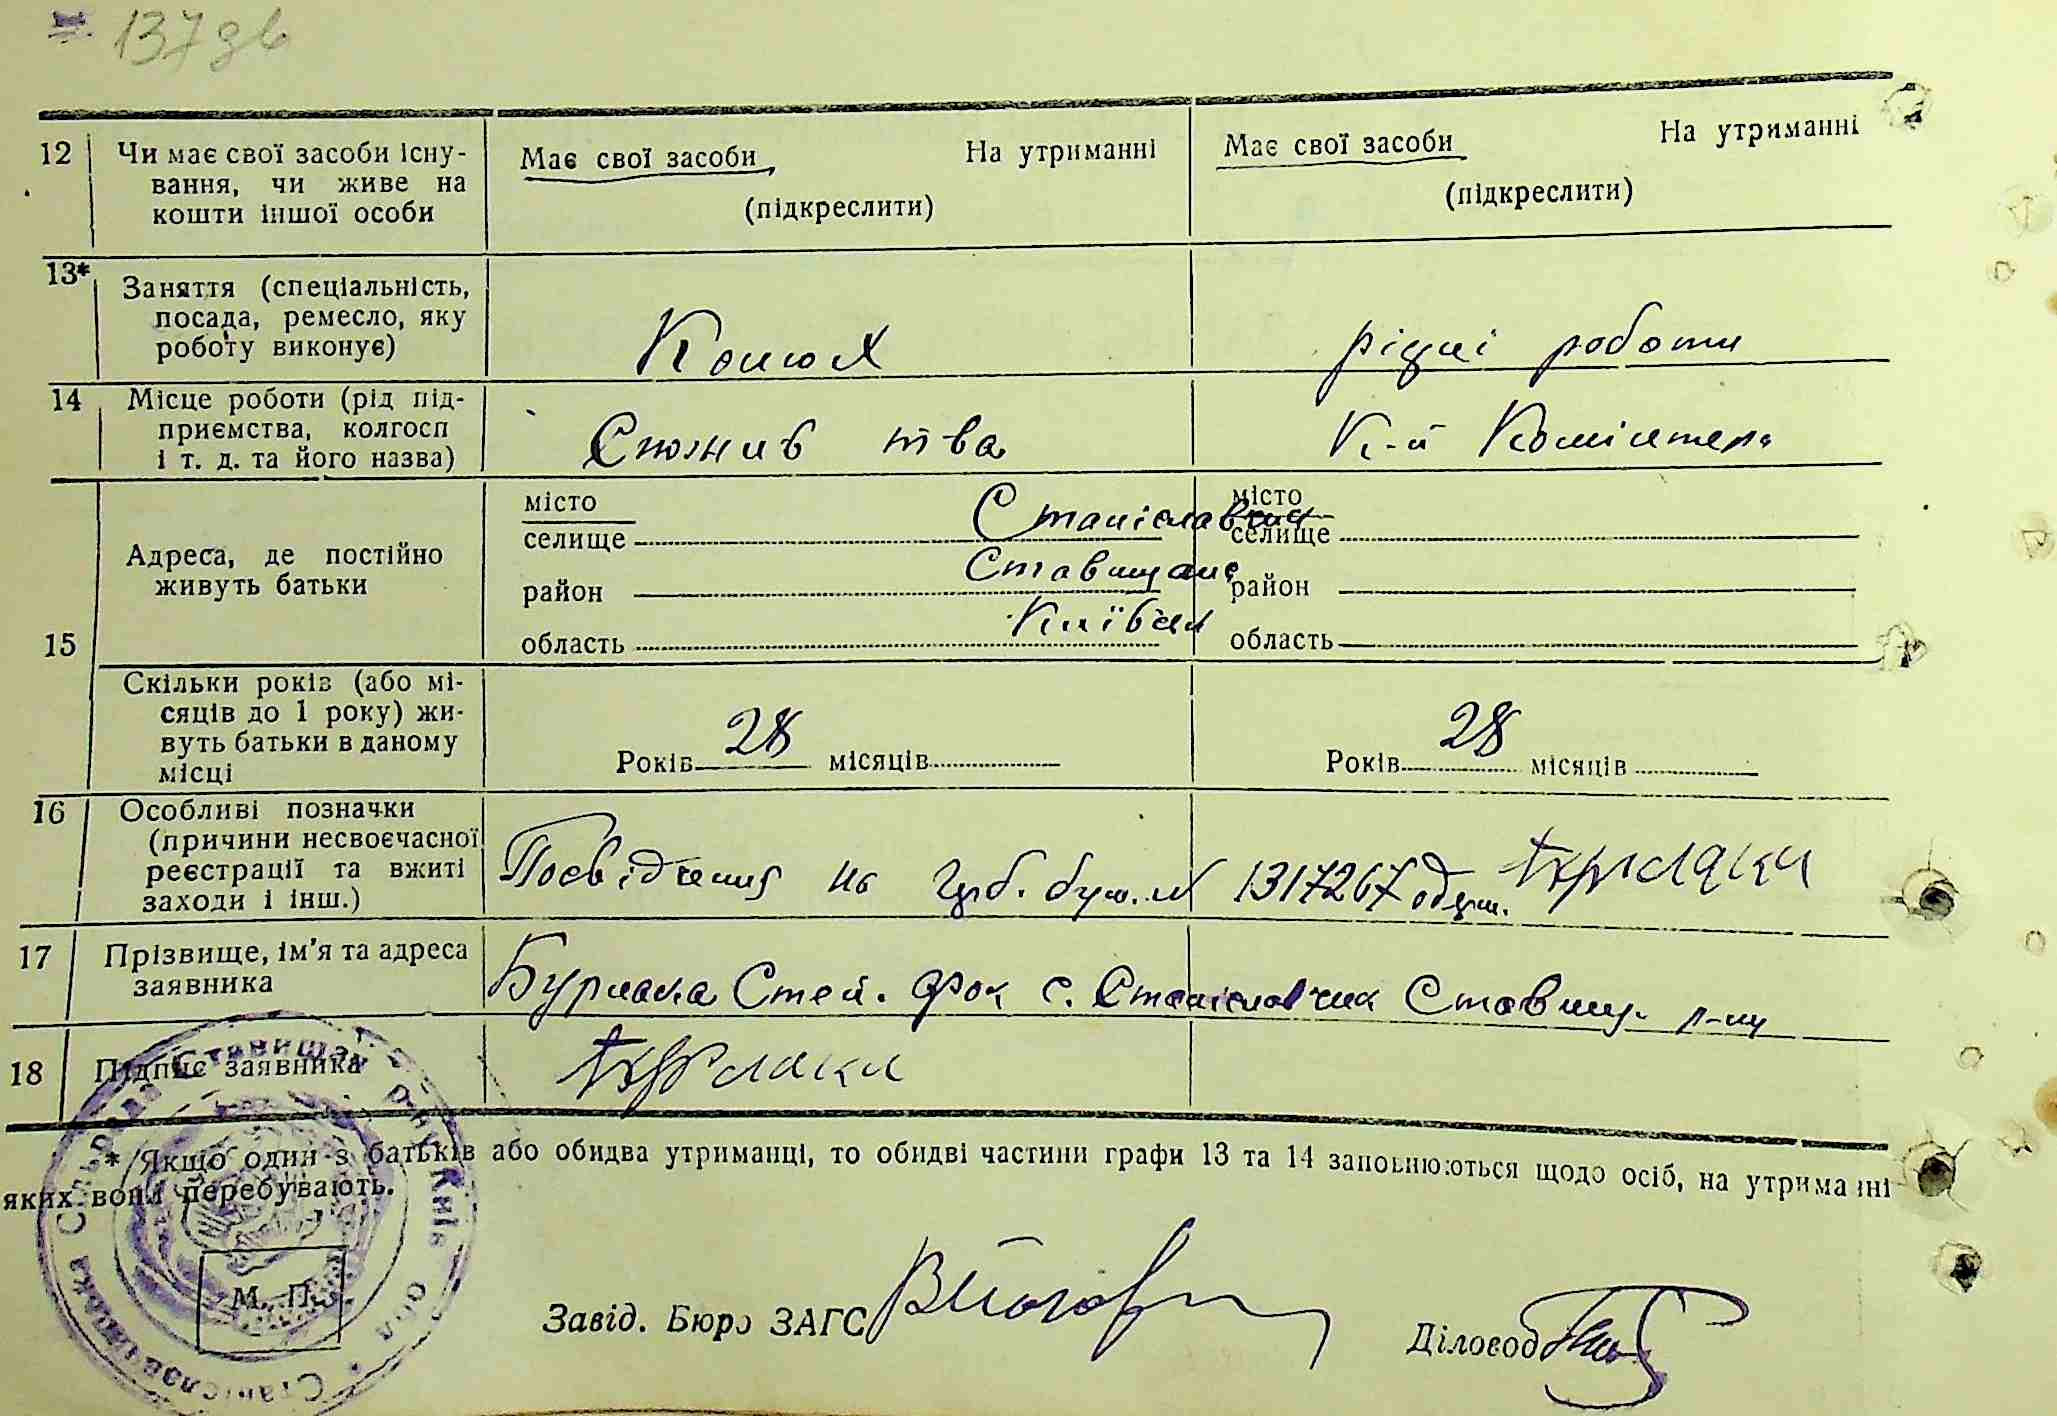 137 зв
12 Чи має свої засоби існу-
вання, чи живе на
кошти іншої особи
Має свої засоби На утриманні
(підкреслити)
Має свої засоби На утриманні
(підкреслити)
13* Заняття (спеціальність,
посада, ремесло, яку
роботу виконує)
Конюх
різні роботи
14 Місце роботи (рід під-
приємства, колгосп
і т. д. та його назва)
Спожив тва
К-п Комінтерн
15 Адреса, де постійно
живуть батьки
місто
селище Станіславчик
район Ставищанс
область Київськ
місто
селище
район
область
Скільки років (або мі-
сяців до 1 року) жи-
вуть батьки в даному
місці
Років 28 місяців
Років 28 місяців
16 Особливі позначки
(причини несвоєчасної
реєстрації та вжиті
заходи і інш.)
Посвідчення на 1317267 одерж.
17 Прізвище, ім'я та адреса
заявника
Бурлака Степ. с. Станіславчик Ставищ. р-ну
18 Підпис заявника
* Якщо один з батьків або обидва утриманці, то обидві частини графи 13 та 14 заповнюються щодо осіб, на утриманні
яких вони перебувають.
М. П.
Завід. Бюро ЗАГС
Діловод